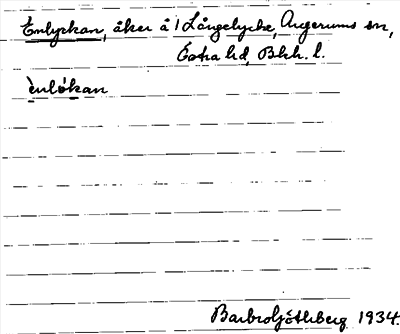 Enlyckan, åker å 1 Långelycke, Augerums sn,
Östra hd, Bkh. l.
ènlö́kan
Barbro Götherberg 1934.